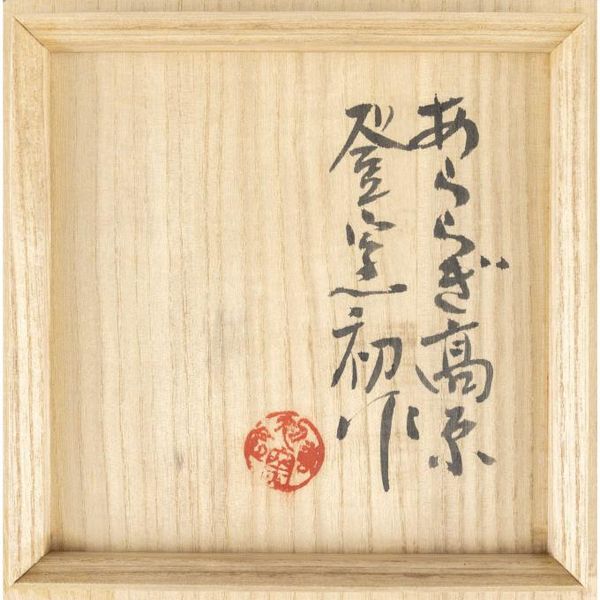 あららぎ高原
登窯初作